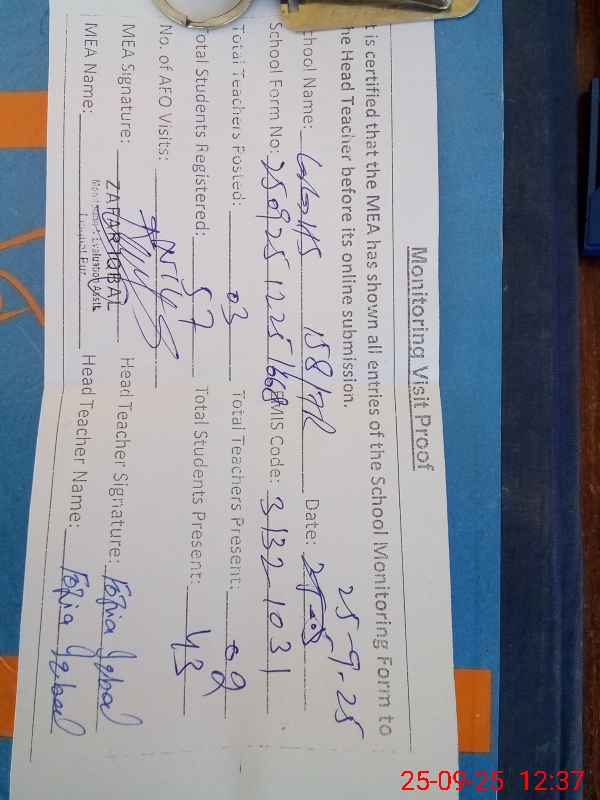 Monitoring Visit Proof
t is certified that the MEA has shown all entries of the School Monitoring Form to
he Head Teacher before its online submission.
25-9-25
chool Name: 158/7R Date:
School Form No: 25092512251668 EMIS Code: 31321031
Total Teachers Posted: 03 Total Teachers Present: 02
Total Students Registered: 57 Total Students Present: 43
No. of AEO Visits:
MEA Signature: Head Teacher Signature: Fozia Iqbal
ZAFAR IQBAL
Monitoring & Evaluation Assistt
MEA Name: Head Teacher Name: Fozia Iqbal
25-09-25 12:37